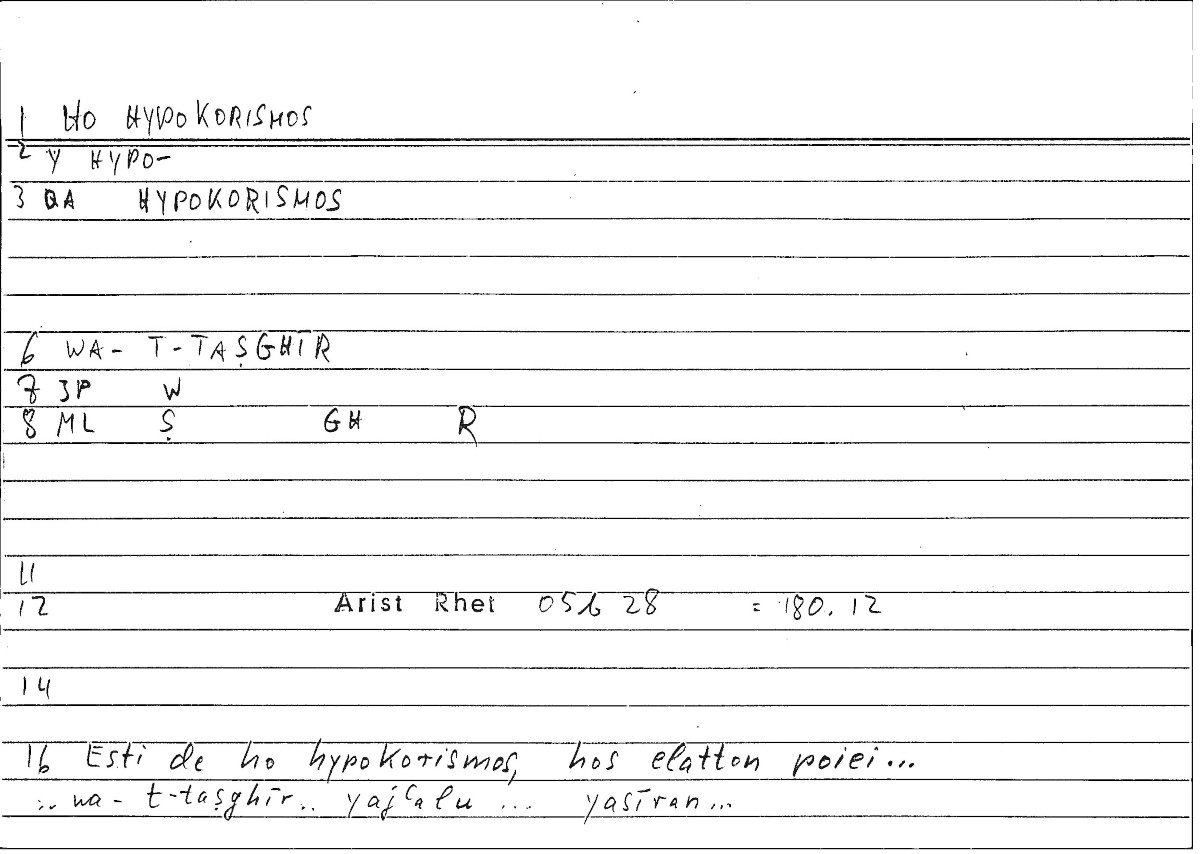 1 HO HYPOKORISMOS
2 Y HYPO-
3 QA HYPOKORISMOS
6 WA- T-TAṢGHĪR
7 3P W
8 ML Ṣ GH R
11
12 Arist Rhet 05b 28 = 180. 12
14
16 Esti de ho hypokorismos, hos elatton poiei...
... wa- t-taṣghīr.. yajʿalu ... yasīran...